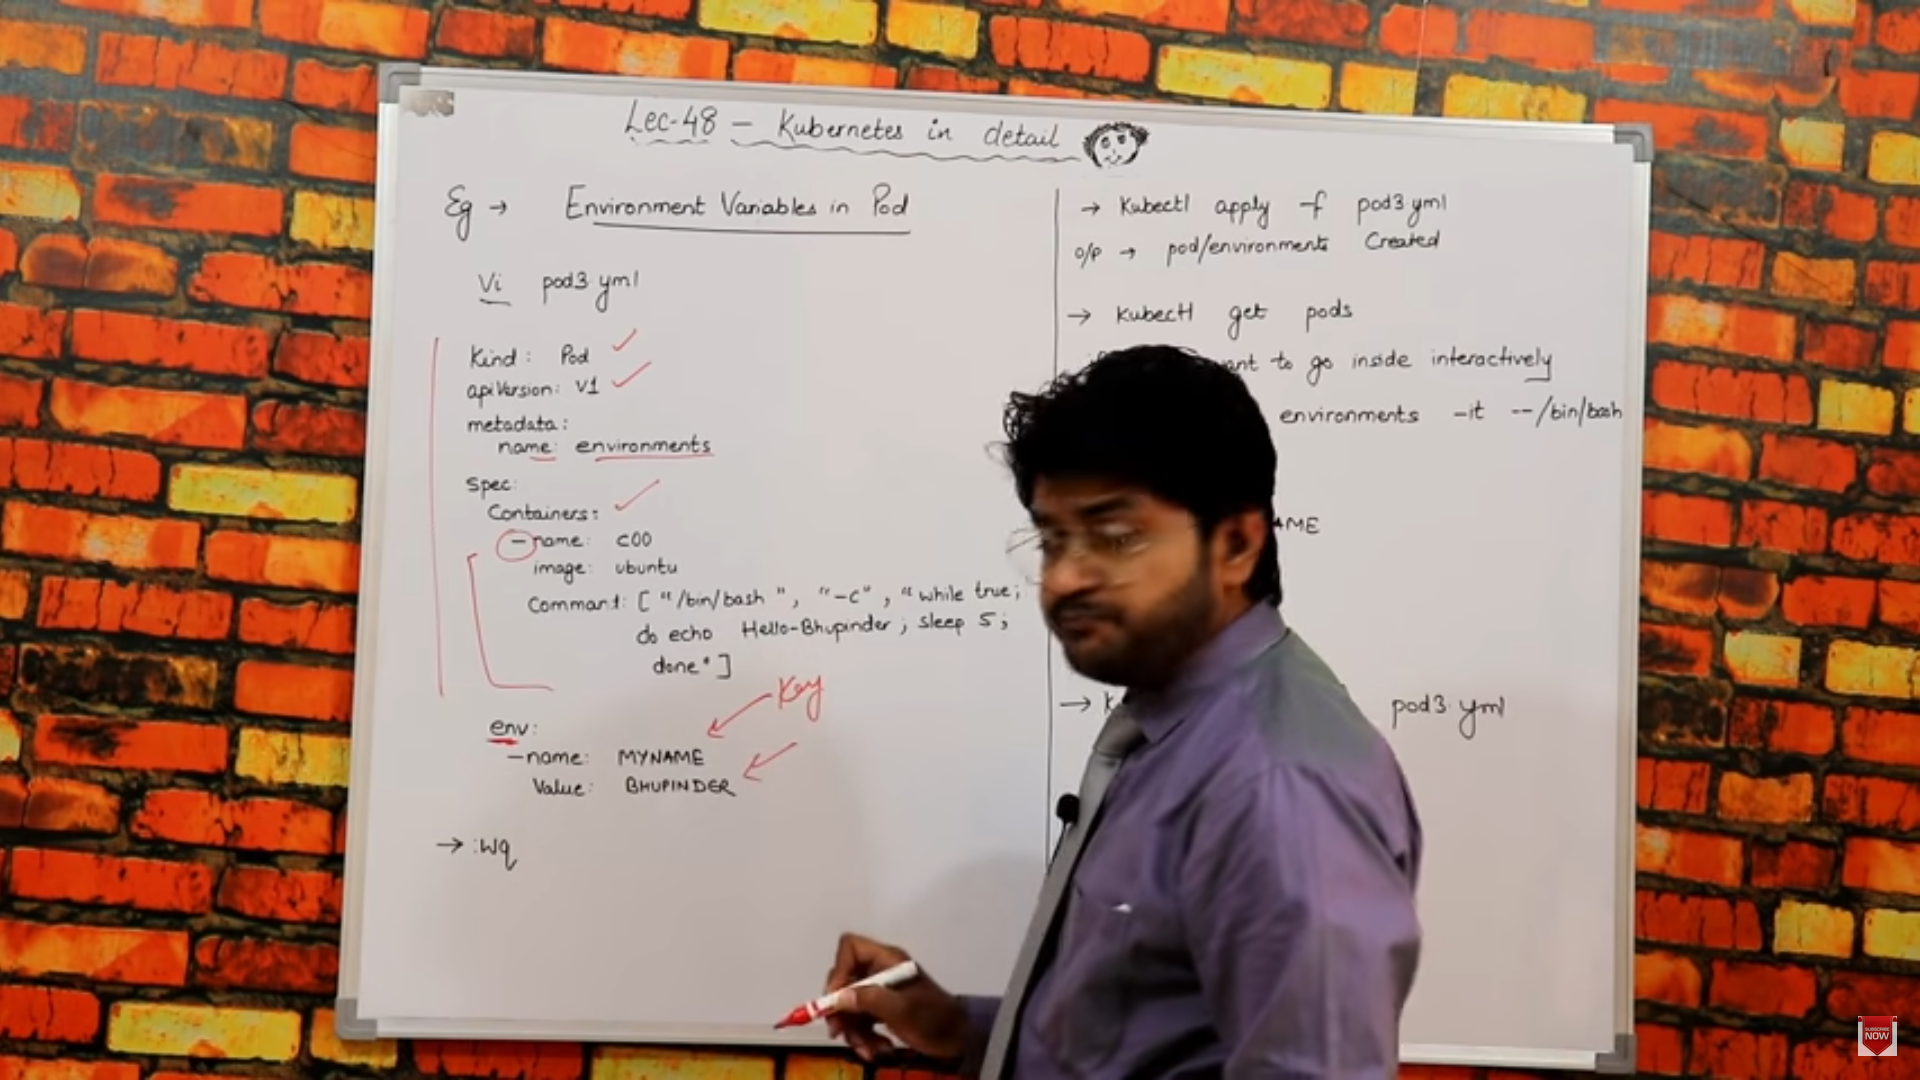 Lec-48 - Kubernetes in detail
Eg → Environment Variables in Pod
Vi pod3.yml
Kind: Pod
apiVersion: v1
metadata:
name: environments
Spec:
Containers:
- name: c00
image: ubuntu
Command: ["/bin/bash", "-c", "while true;
do echo Hello-Bhupinder; sleep 5;
done"]
Key
env:
- name: MYNAME
Value: BHUPINDER
→ :wq
→ Kubectl apply -f pod3.yml
o/p → pod/environments Created
→ Kubectl get pods
to go inside interactively
environments -it --/bin/bash
→
pod3.yml
SUBSCRIBE
NOW